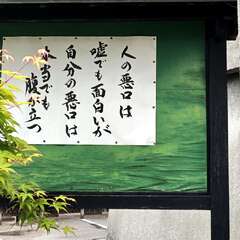 人の悪口は
嘘でも面白いが
自分の悪口は
本当でも
腹が立つ